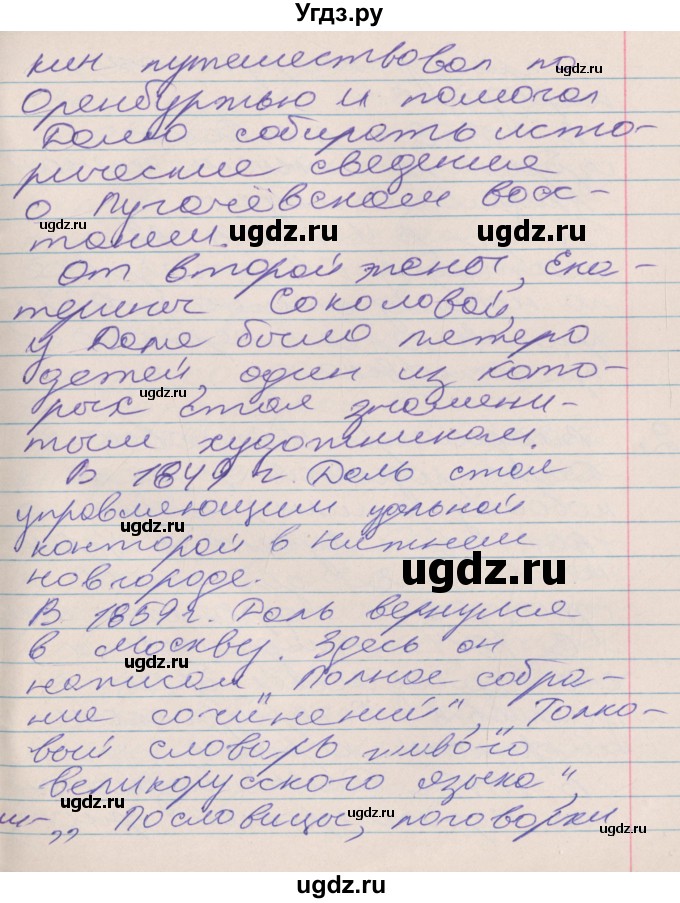 Угдз.ру
кин путешествовал по
Оренбуржью и помогал
Далю собирать исто-
рические сведения
о Пугачёвском восс-
тании.
От второй жены, Ека-
терины Соколовой,
у Даля было пятеро
детей, один из кото-
рых стал знамени-
тым художником.
В 1849 г. Даль стал
управляющим удельной
конторой в Нижнем
новгороде.
В 1859 г. Даль вернулся
в Москву. Здесь он
написал „Полное собра-
ние сочинений", „Толко-
вый словарь живого
великорусского языка",
„Пословицы, поговорки
ugdz.ru
ugdz.ru
ugdz.ru
ugdz.ru
ugdz.ru
ugdz.ru
ugdz.ru
ugdz.ru
ugdz.ru
ugdz.ru
ugdz.ru
ugdz.ru
ugdz.ru